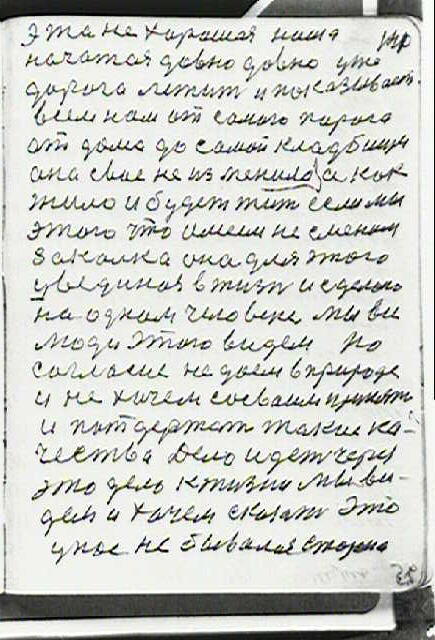 эта не хорошая наша
начатая давно давно уже
дорога лежит и показывает
всем нам от самого порога
от дома до самой кладбищи
она свое не изменила а как
жило и будет жит если мы
этого что имеем не сменим
Закалка она для этого
увединая в жизн и сделана
на одном человеке мы ви
люди этого видем но
согласие не даем в природе
и не хочем соеваим принять
и потдержат такие ка-
чества Дело идет через
это дело к жизни мы ви-
дем и хочем сказат это
уное не бывалая сторона